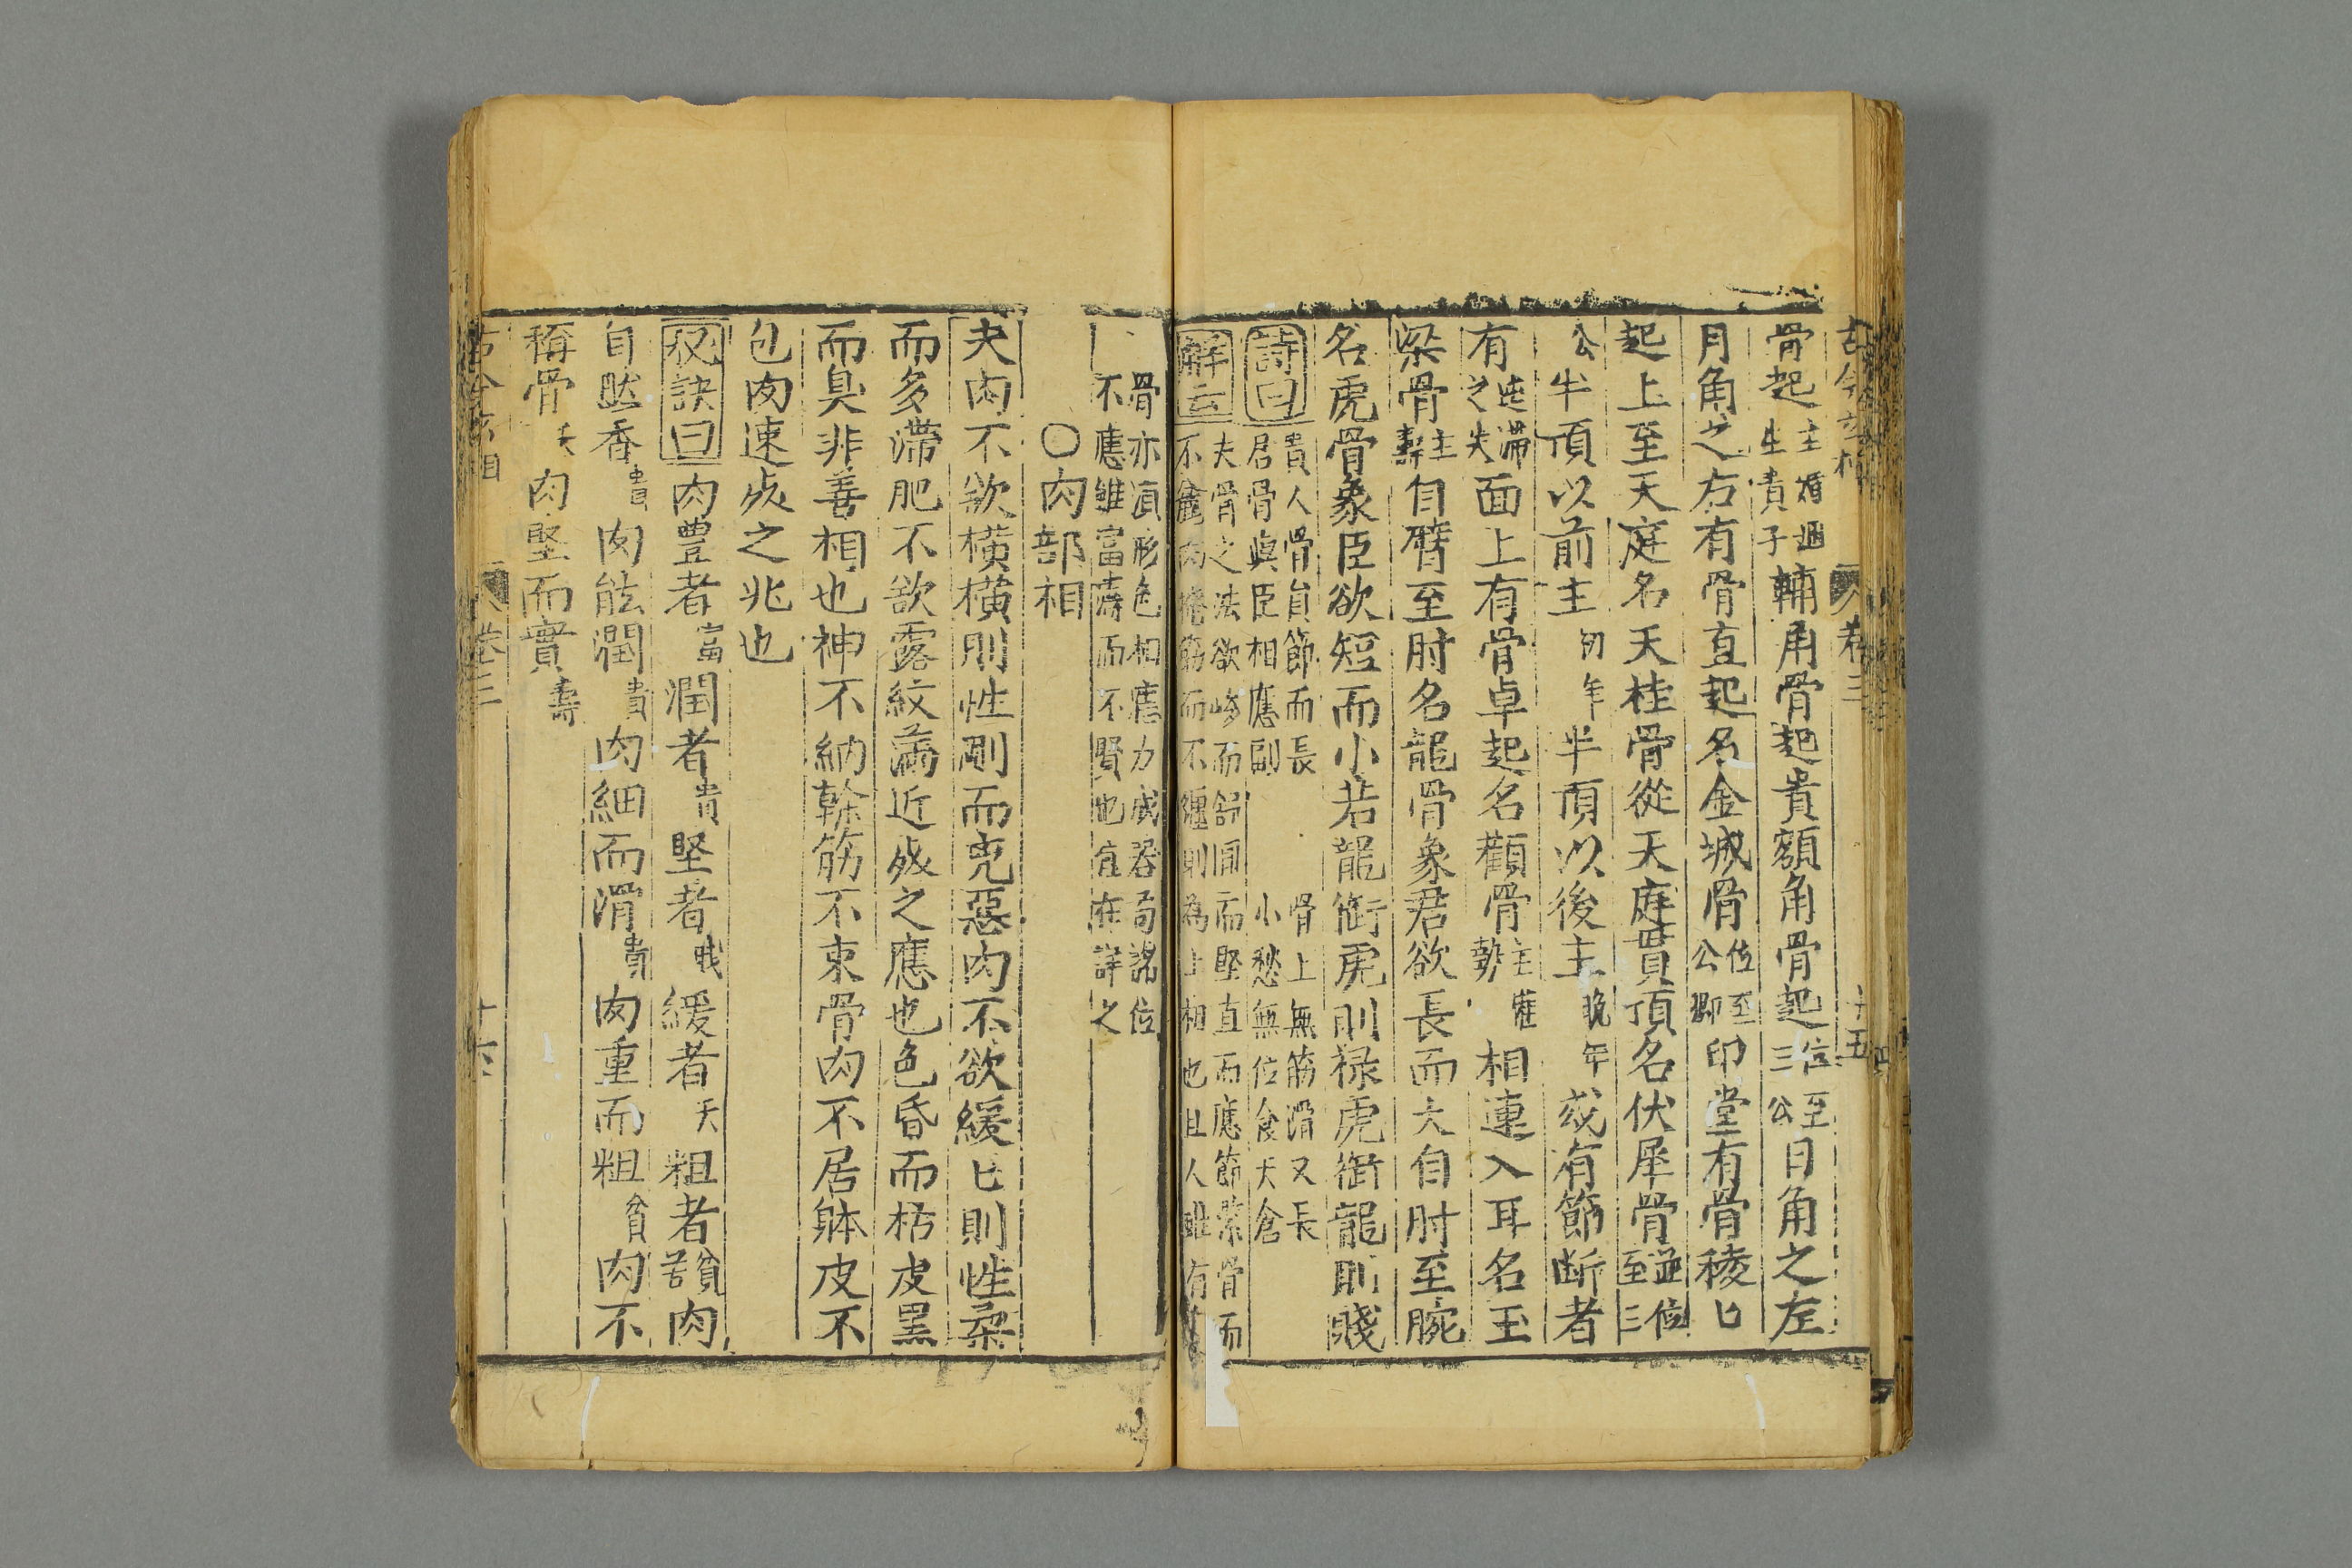 古今 相 卷三 十五
骨起主婚週生貴子輔角骨起貴額角骨起位至三公日角之左
月角之右有骨直起名金城骨位至公卿印堂有骨稜匕
起上至天庭名天桂骨從天庭貫頂名伏犀骨並位至三
公半頂以前主初年半頂以後主晚年或有節断者
有迍滞之失面上有骨卓起名顴骨主權勢相連入耳名玉
梁骨主壽自臂至肘名龍骨象君欲長而大自肘至腕
名虎骨象臣欲短而小若龍銜虎則禄虎銜龍則賤
詩曰貴人骨貟節而長 骨上無筋滑又長
君骨與臣相應副 小愁無位食天倉
觧云夫骨之法欲峻而舒圓而堅直而應節緊骨而
不麄肉 筋而不纏則為上相也且人雖有
骨亦湏形色相應力成器局認位
不應雖富壽而不賢也宜在詳之
〇肉部相
夫肉不欲橫橫則性剛而㓙惡肉不欲緩匕則性柔
而多滯肥不欲露紋滿近死之應也色昏而枯皮黑
而臭非善相也神不納幹筋不束骨肉不居躰皮不
包肉速死之兆也
秘訣曰肉豊者富潤者貴堅者賎緩者夭粗者貧苦肉
自然香貴肉能潤貴肉細而滑貴肉重而粗貧肉不
稱骨夭肉堅而實壽
古今 相 卷三 十六